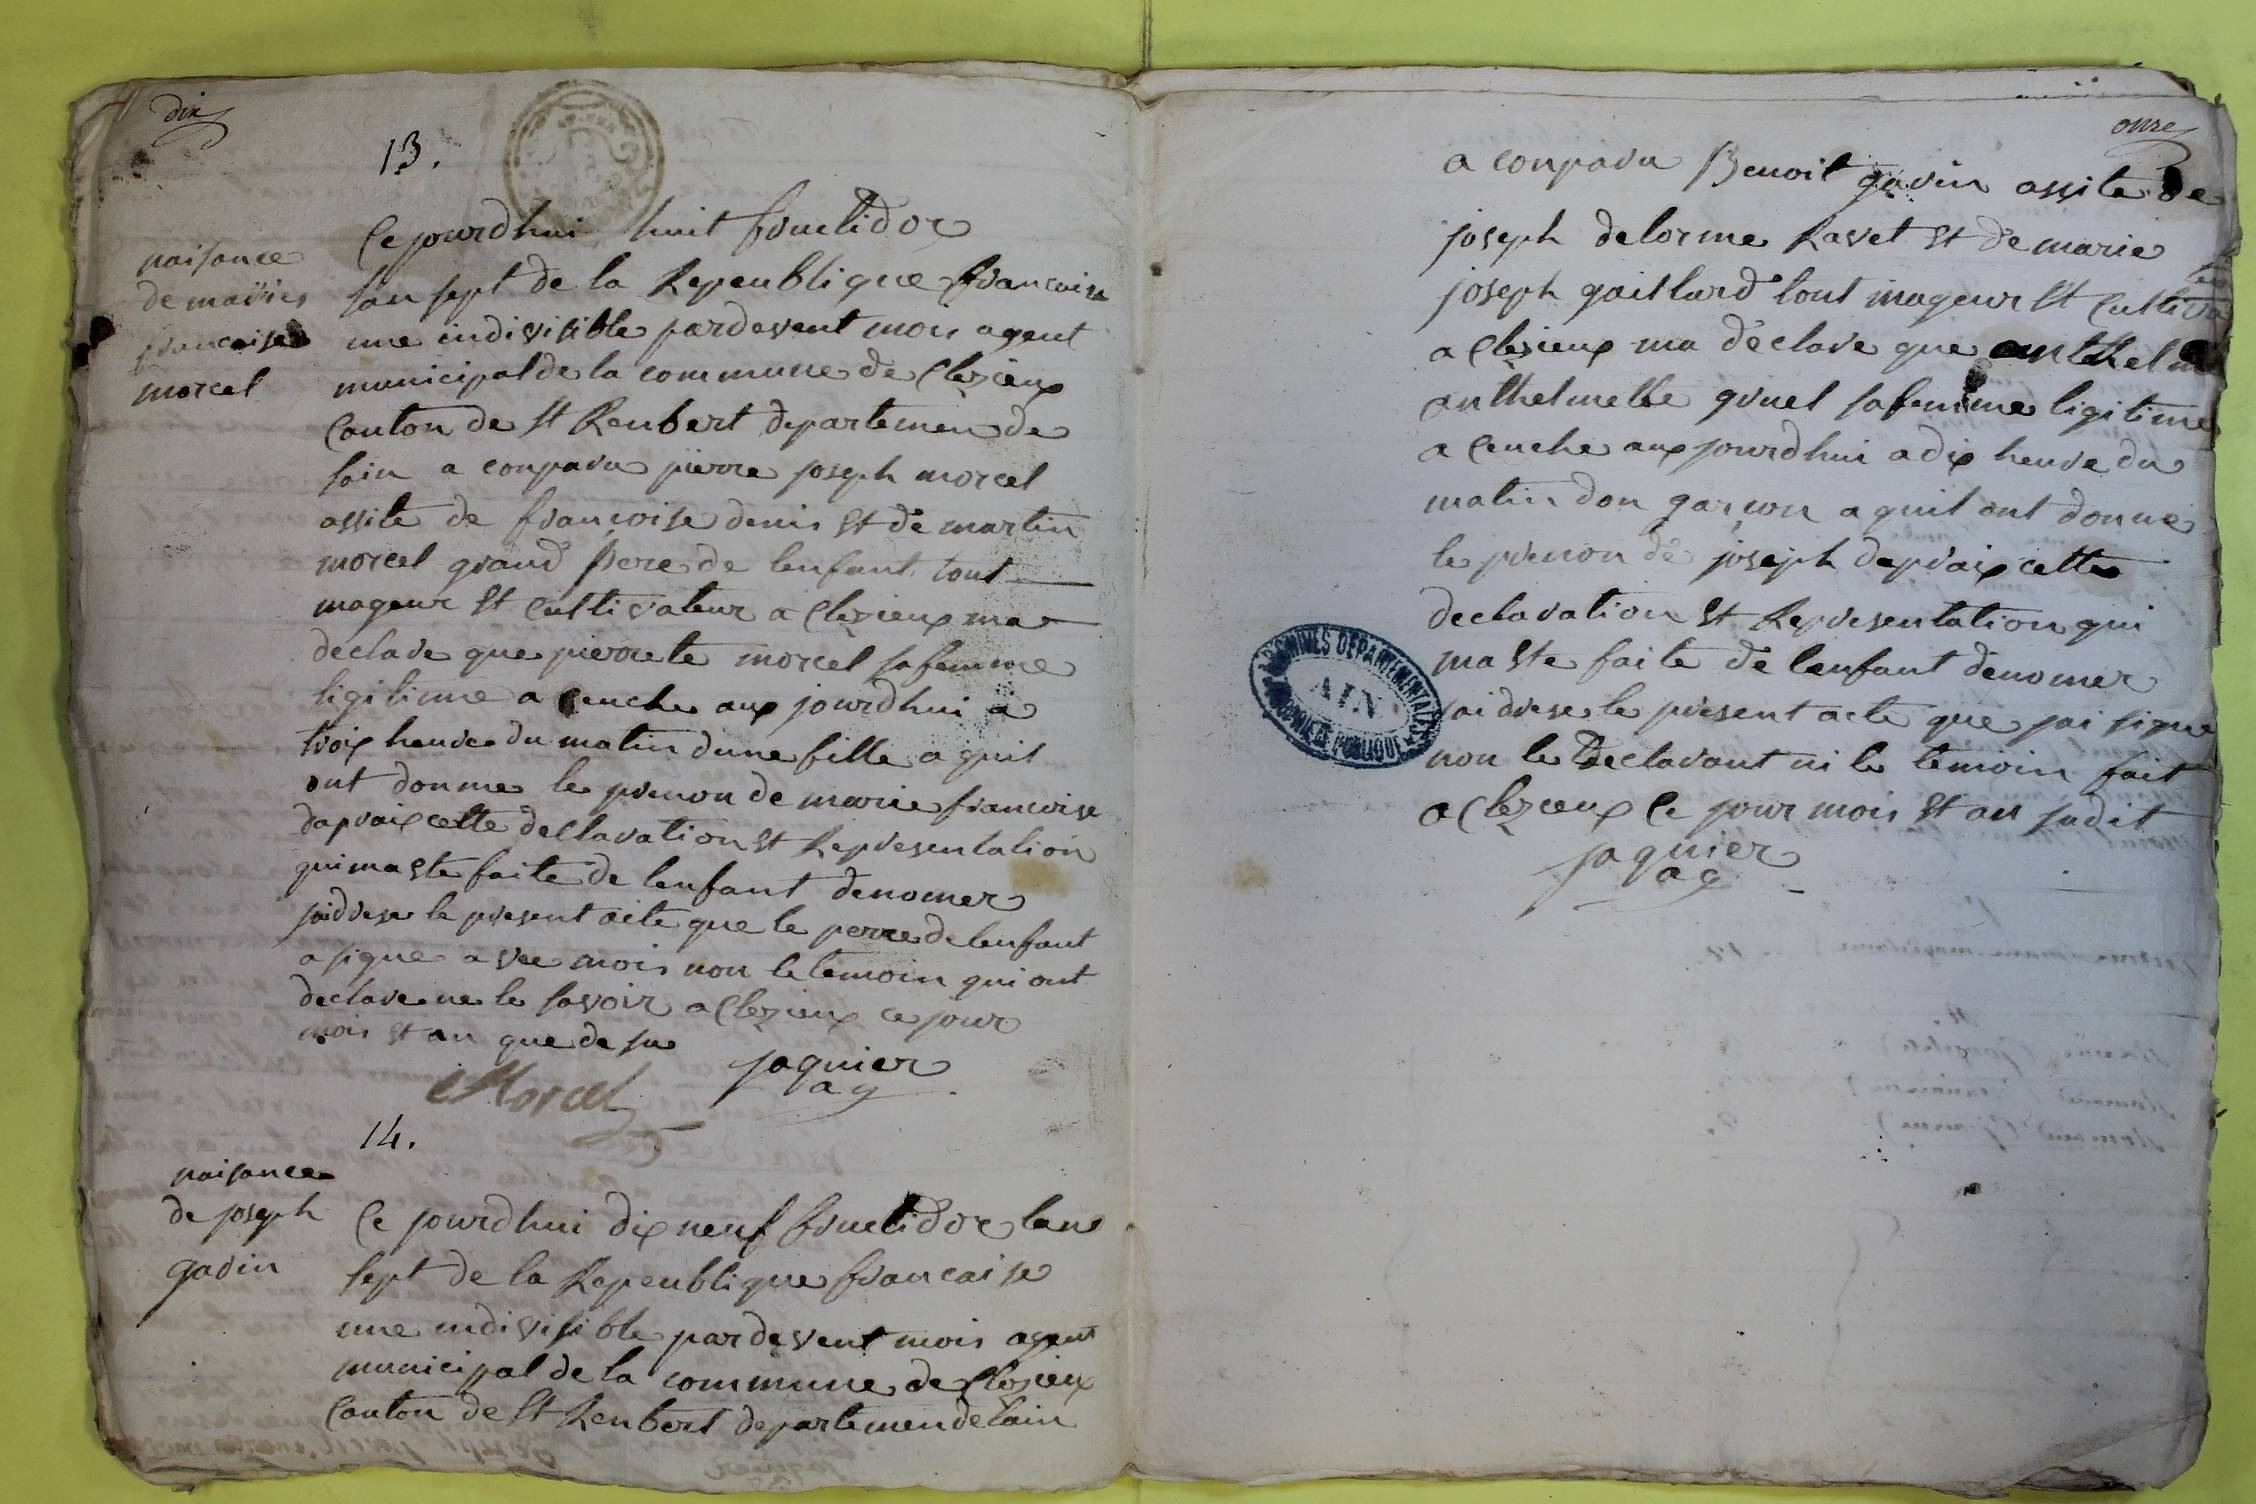 dix
13.
naisance
de maries
francaise
morcel
Ce jourdhui huit fructidor
lan sept de la Repeublique francaise
une indivisible pardevent mois agent
municipal de la commune de Clezieux
Canton de St Renbert departemen de
lain a conparu pierre joseph morcel
assite de francoise denis et de martin
morcel grand pere de lenfant tout
mageur et Cultivateur a Clezieux ma
declare que pierrete morcel sa femme
ligitime a Ceuche aux jourdhui a
troix heure du matin dune fille a quil
ont donne le prenon de marie francoise
dapraix cette declaration et Representation
qui maete faite de lenfant denomer
jai drese le present acte que le perre de lenfant
a signe avec mois non le temoin qui ont
declare ne le savoir a Clezieux ce jour
mois et an que de su
Morcel
jaquier
ag
14.
naisance
de joseph
gavin
Ce jourdhui dix neuf fructidor lan
sept de la Repeublique francaise
une indivisible pardevent mois agent
municipal de la commune de Clezieux
Canton de St Renbert departemen de lain
onze
a conparu Benoit gavin assite de
joseph delorme Ravet et de marie
joseph gaillard tout mageur et Cultiva
a Clezieux ma declare que
anthelmette gruel sa femme ligitime
a Ceuche aux jourdhui a dix heure du
matin don garcon a quil ont donne
le prenon de joseph dapraix cette
declaration et Representation qui
maete faite de lenfant denomer
jai drese le present acte que jai signe
non le declarant ni le temoin fait
a Clezieux Ce jour mois et an sudit
jaquier
ag
ARCHIVES DEPARTEMENTALES
AIN